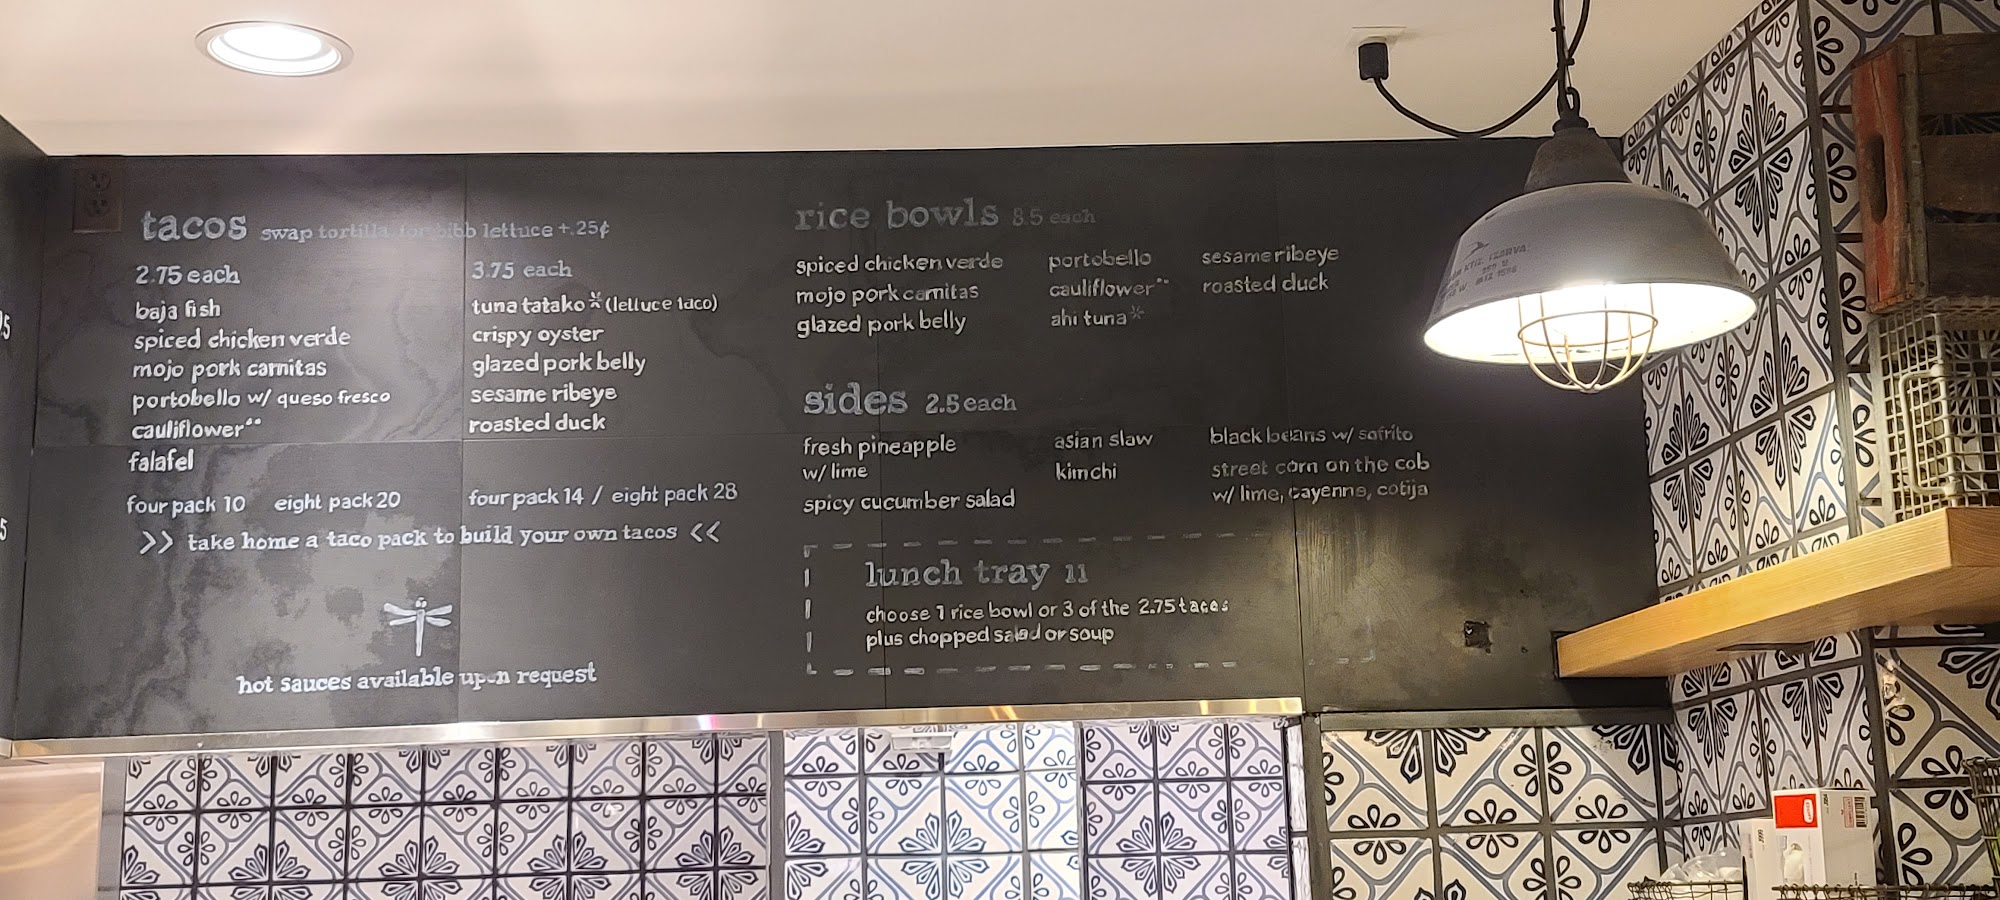 tacos swap tortilla for bibb lettuce +.25¢
2.75 each
baja fish
spiced chicken verde
mojo pork carnitas
portobello w/ queso fresco
cauliflower**
falafel
four pack 10 eight pack 20
3.75 each
tuna tatako* (lettuce taco)
crispy oyster
glazed pork belly
sesame ribeye
roasted duck
four pack 14 / eight pack 28
>> take home a taco pack to build your own tacos <<
hot sauces available upon request
rice bowls 8.5 each
spiced chicken verde
mojo pork carnitas
glazed pork belly
portobello
cauliflower**
ahi tuna*
sesame ribeye
roasted duck
sides 2.5 each
fresh pineapple
w/ lime
spicy cucumber salad
asian slaw
kimchi
black beans w/ sofrito
street corn on the cob
w/ lime, cayenne, cotija
lunch tray 11
choose 1 rice bowl or 3 of the 2.75 tacos
plus chopped salad or soup